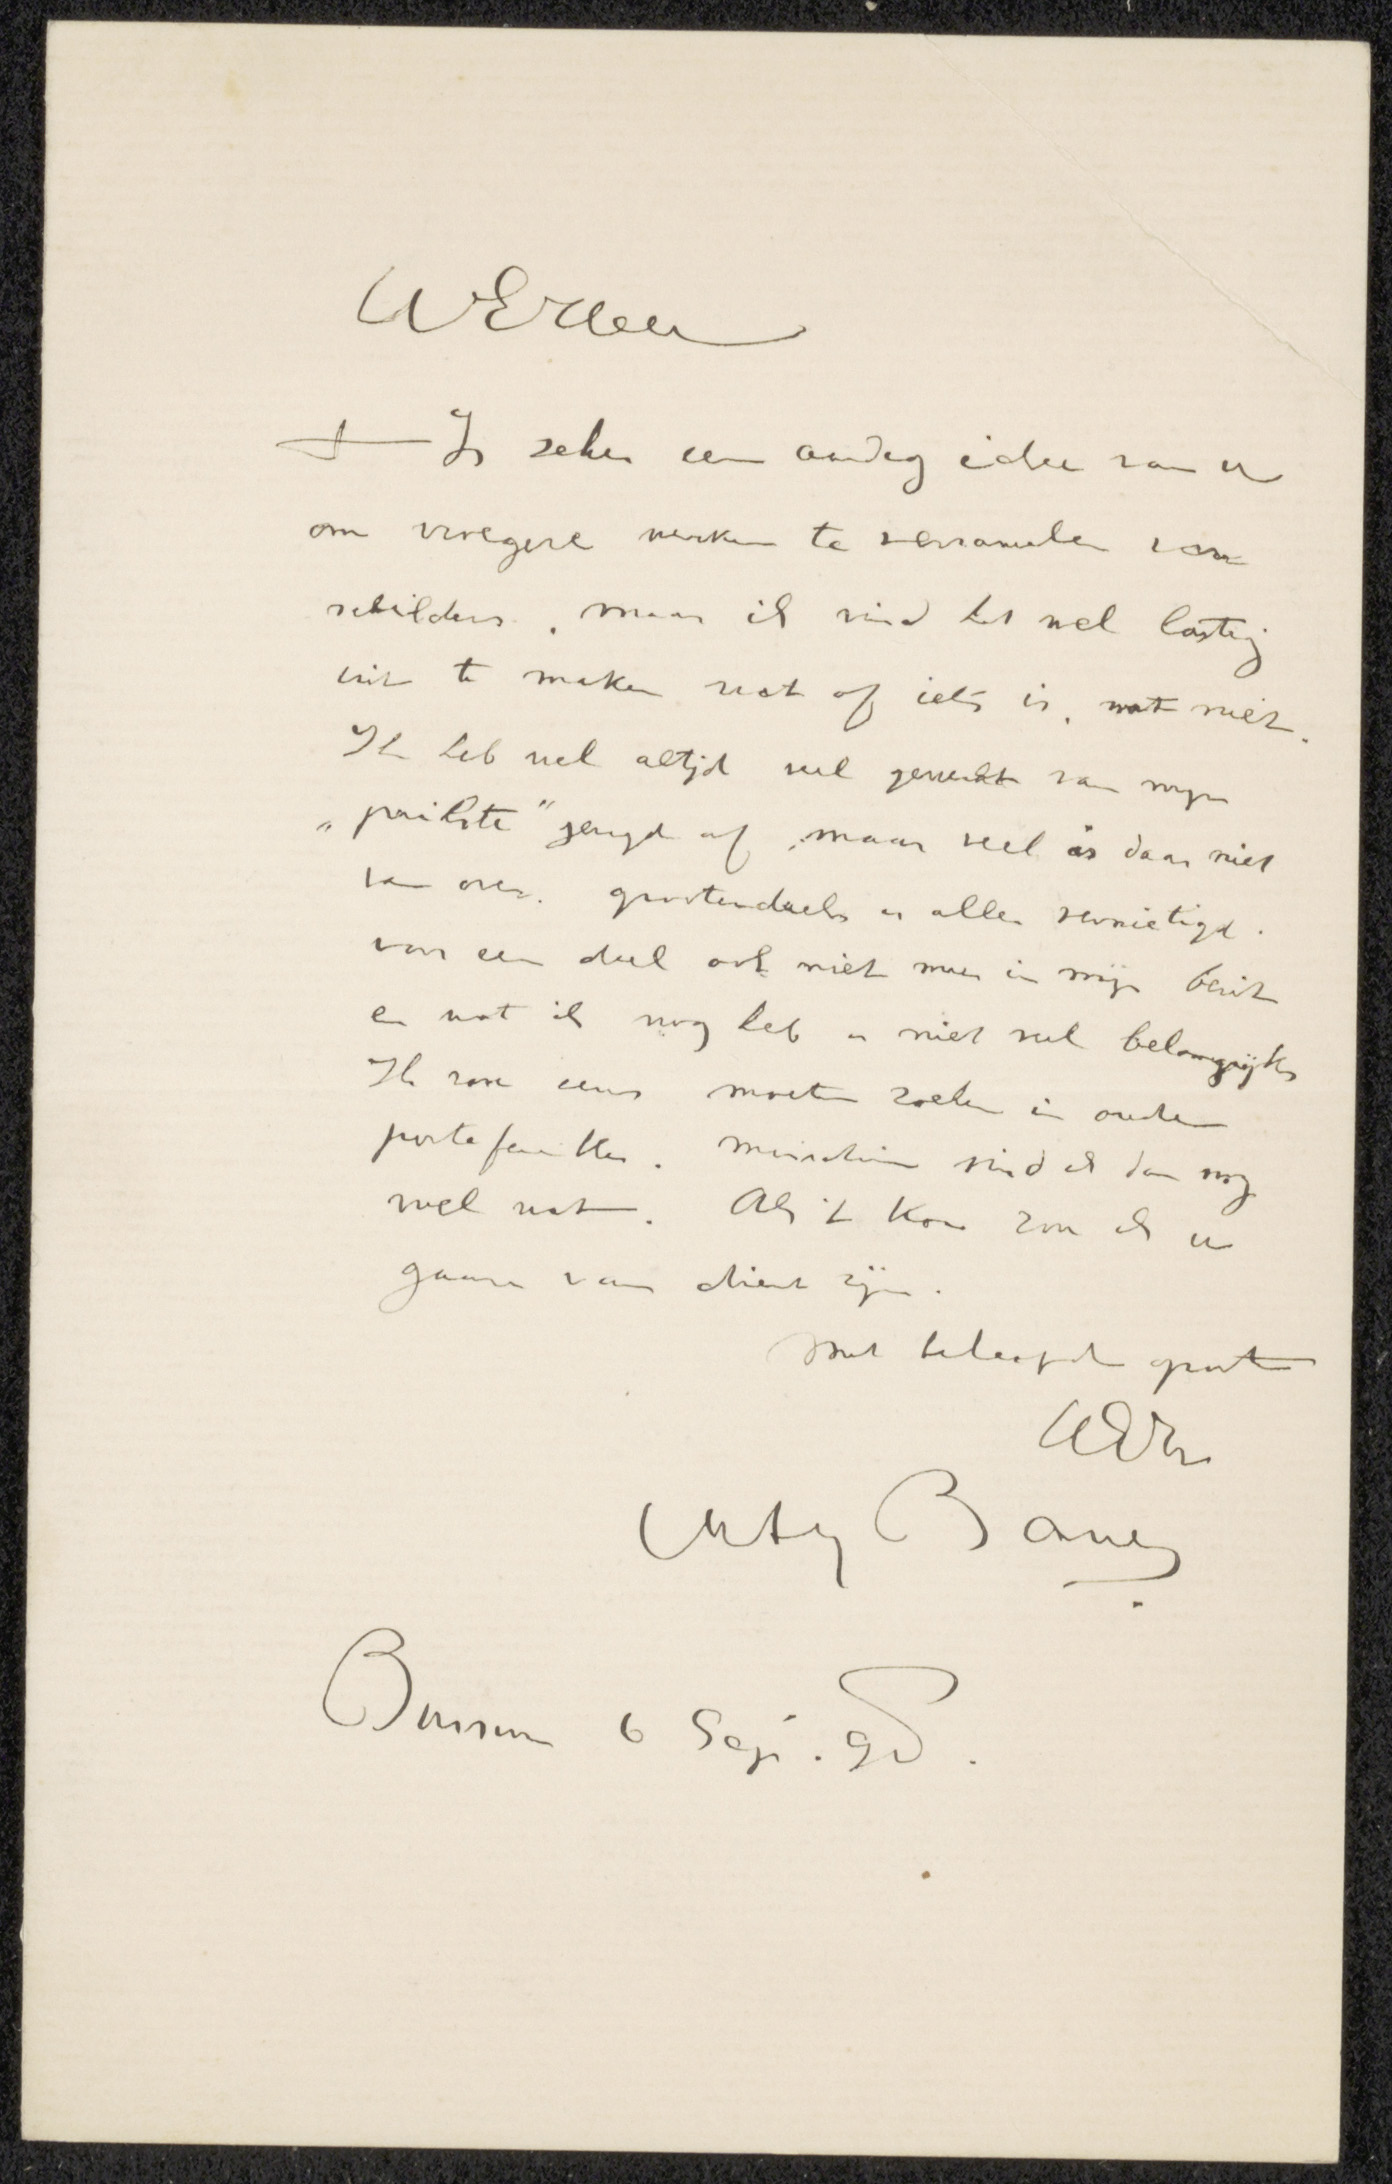 WEHeer
't Is zeker een aardig idee van u
om vroegere werken te verzamelen van
schilders, maar ik vind het wel lastig
uit te maken wat of iets is, wat niet.
Ik heb wel altijd veel gewerkt van mijn
„prilste" jeugd af, maar veel is daar niet
van over. grootendeels is alles vernietigd.
voor een deel ook niet meer in mijn bezit
en wat ik nog heb is niet veel belangrijks
Ik zou eens moeten zoeken in oude
portefeuilles. misschien vind ik dan nog
wel wat. Als 't kon zou ik u
gaarne van dienst zijn.
met beleefde groet
UEDw
Bauer
Bussum 6 Sep.